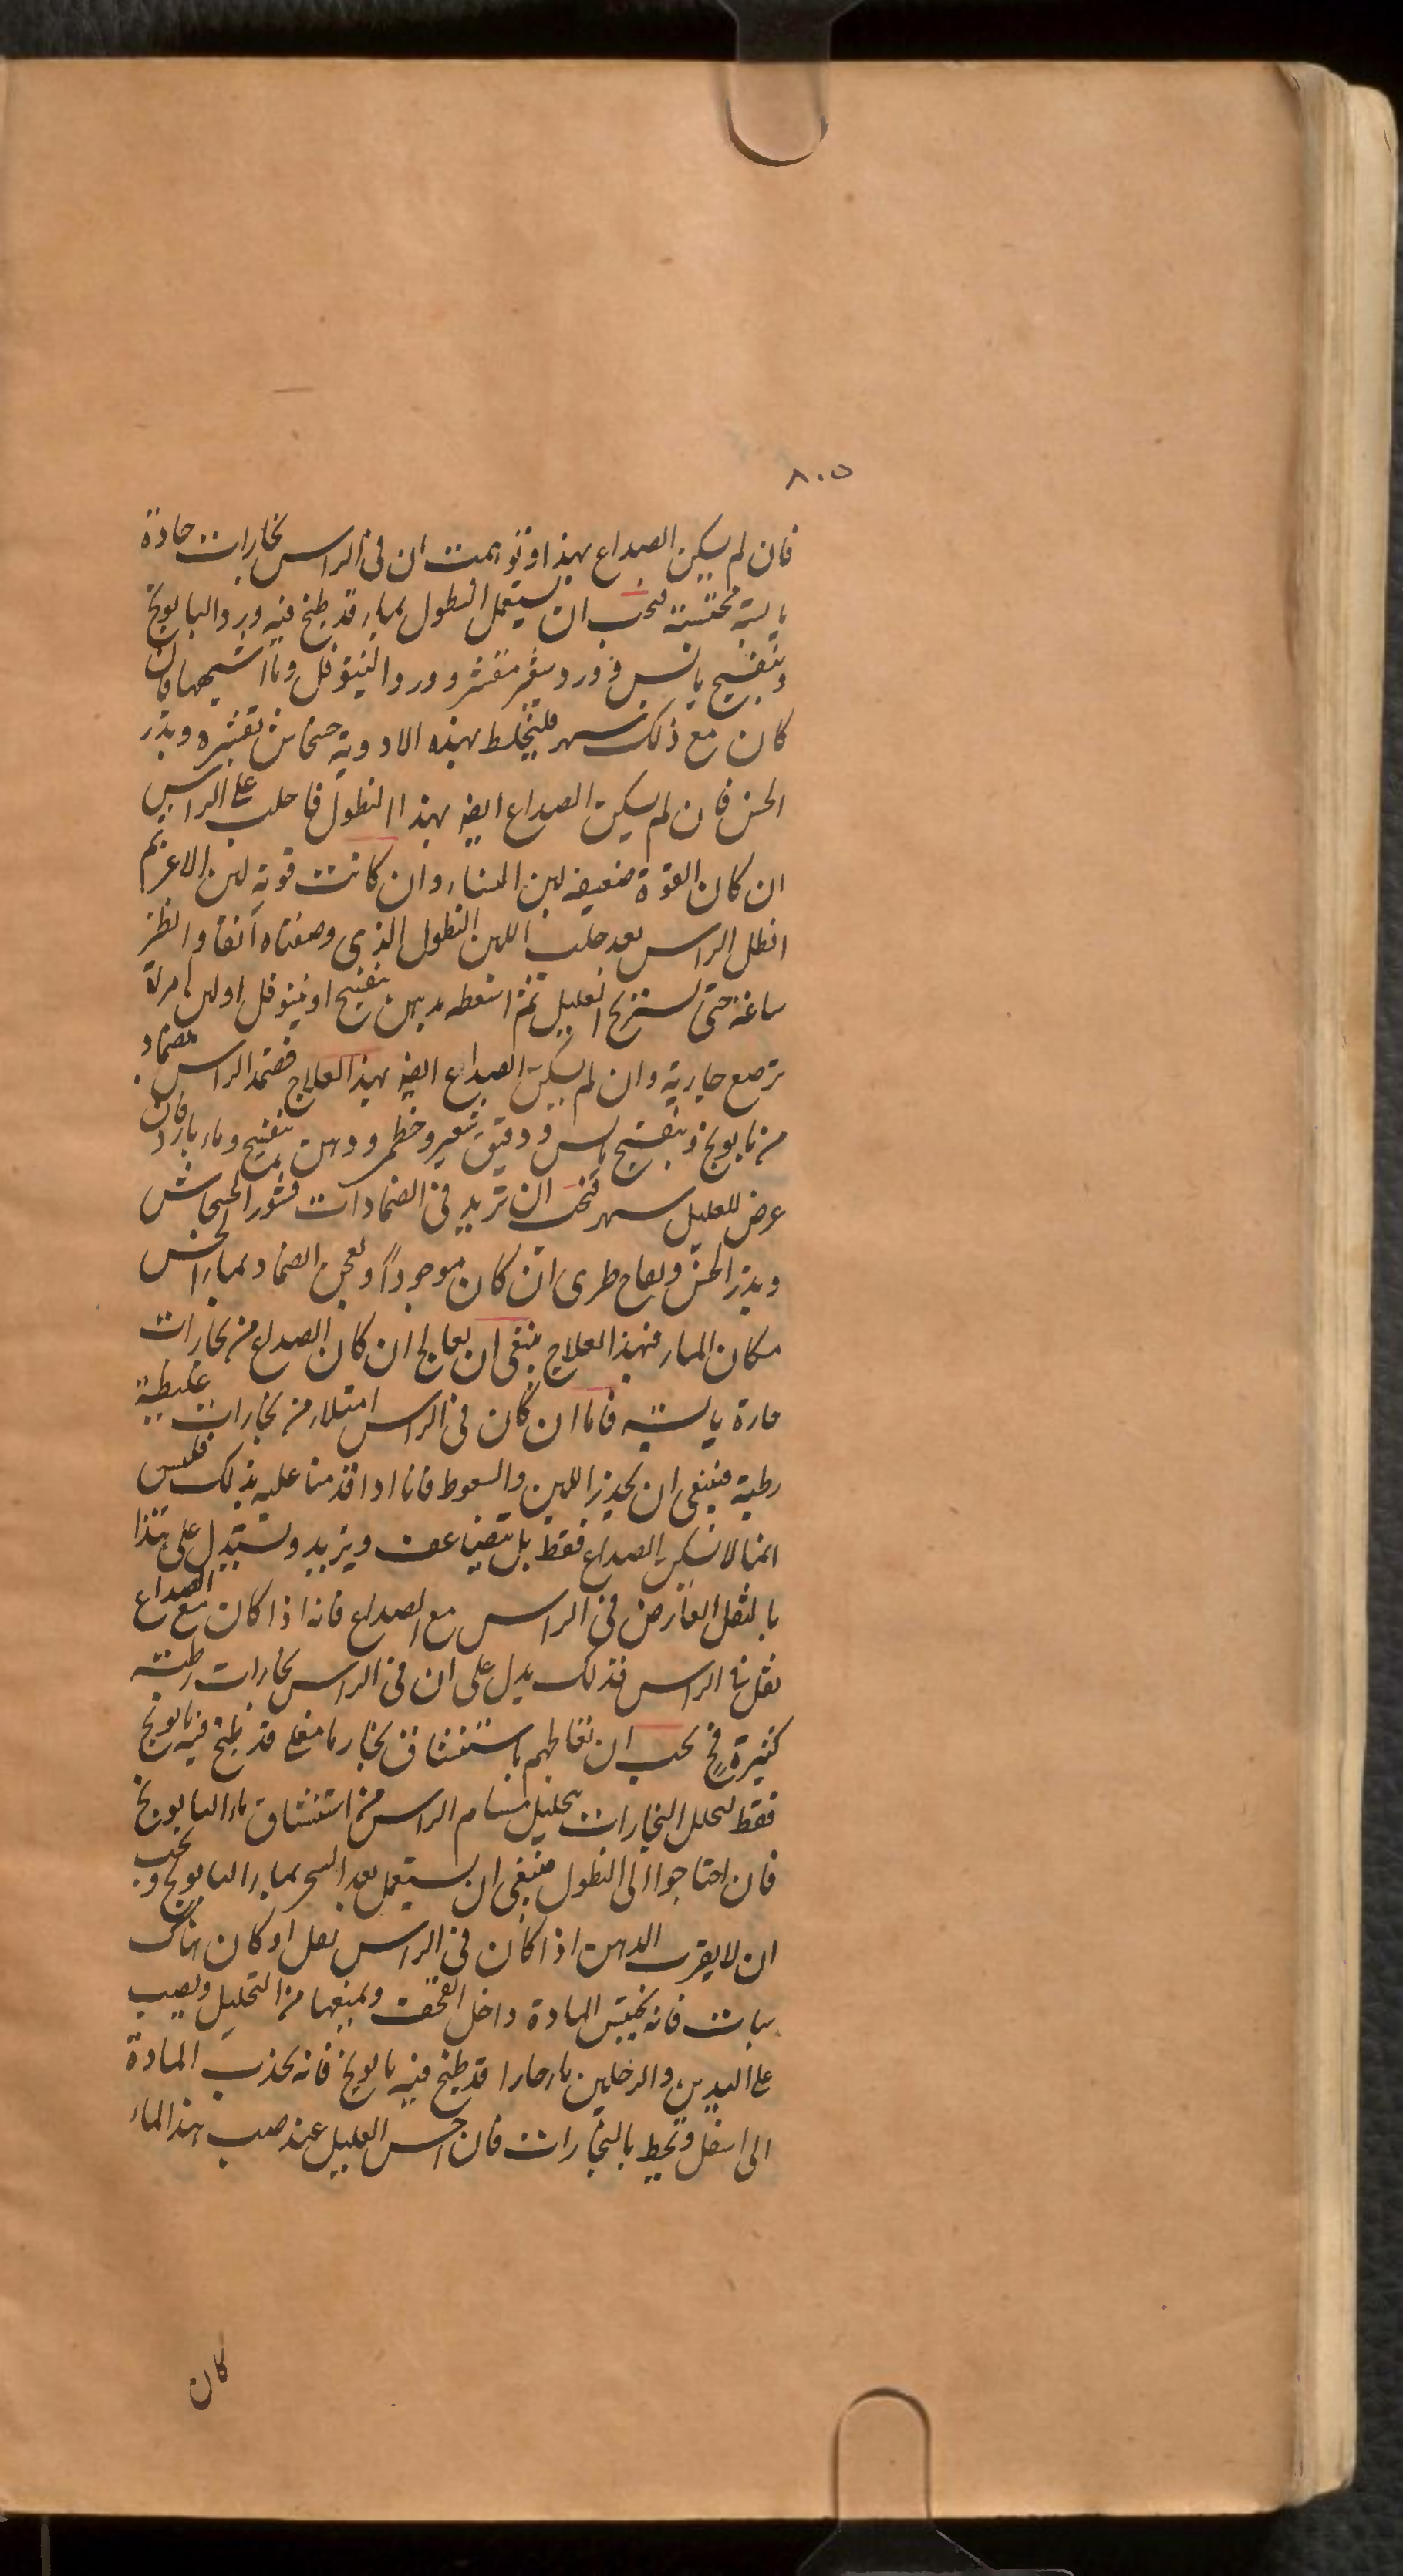 ٨٠٥
فان لم يسكن الصداع بهذا وتوهمت ان فى الراس بخارات حادة
يابسة محتبسة فيجب ان يستعمل النطول بماء قد طبخ فيه ورد البابونج
وبنفسج يابس وورد شعير مقشر وورد النينوفل وما اشبهها فان
كان مع ذلك سهر فليخلط بهذه الادوية خشخاش بقشره وبذر
الخس فان لم يسكن الصداع ايضا بهذا النطول فاحلب على الراس
ان كان القوة ضعيفة لبن النساء وان كانت قوية لبن الاعز ثم
انطل الراس بعد حلب اللبن النطول الذى وصفناه آنفا وانظر
ساعة حتى يستريح العليل ثم اسعطه بدهن بنفسج او نينوفل او لبن امراة
ترضع جارية وان لم يسكن الصداع ايضا بهذا العلاج فضمد الراس بضماد
من بابونج وبنفسج يابس ودقيق شعير وخطمى ودهن بنفسج وماء بارد فان
عرض للعليل سهر فيجب ان تزيد فى الضمادات قشور الخشخاش
وبذر الخس ولفاح طرى ان كان موجودا ولعجن الضماد بماء الخس
مكان الماء فبهذا العلاج ينبغى ان يعالج ان كان الصداع من بخارات
حارة يابسة فاما ان كان فى الراس امتلاء من بخارات غليظة
رطبة فينبغى ان يحذر اللبن والسعوط فانا اذا اقدمنا عليه بذلك فليس
انما لا نسكن الصداع فقط بل يتضاعف ويزيد ويستدل على هذا
بالثقل العارض فى الراس مع الصداع فانه اذا كان مع الصداع
ثقل فى الراس فذلك يدل على ان فى الراس بخارات رطبة
كثيرة فح يجب ان نعالجهم باستنشاق بخار ما مغلى قد طبخ فيه بابونج
فقط لتحلل البخارات بتحليل مسام الراس من استنشاق ماء البابونج
فان احتاجوا الى النطول فينبغى ان يستعمل بعد السحر بماء البابونج ويجب
ان لا يقرب الدهن اذا كان فى الراس ثقل او كان هناك
سبات فانه يحتبس المادة داخل القحف ويمنعها من التحليل ويصب
على اليدين والرجلين ماء حارا قد طبخ فيه بابونج فانه يجذب المادة
الى اسفل ويحط بالبخارات فان احس العليل عند صب هذا الماء
كان